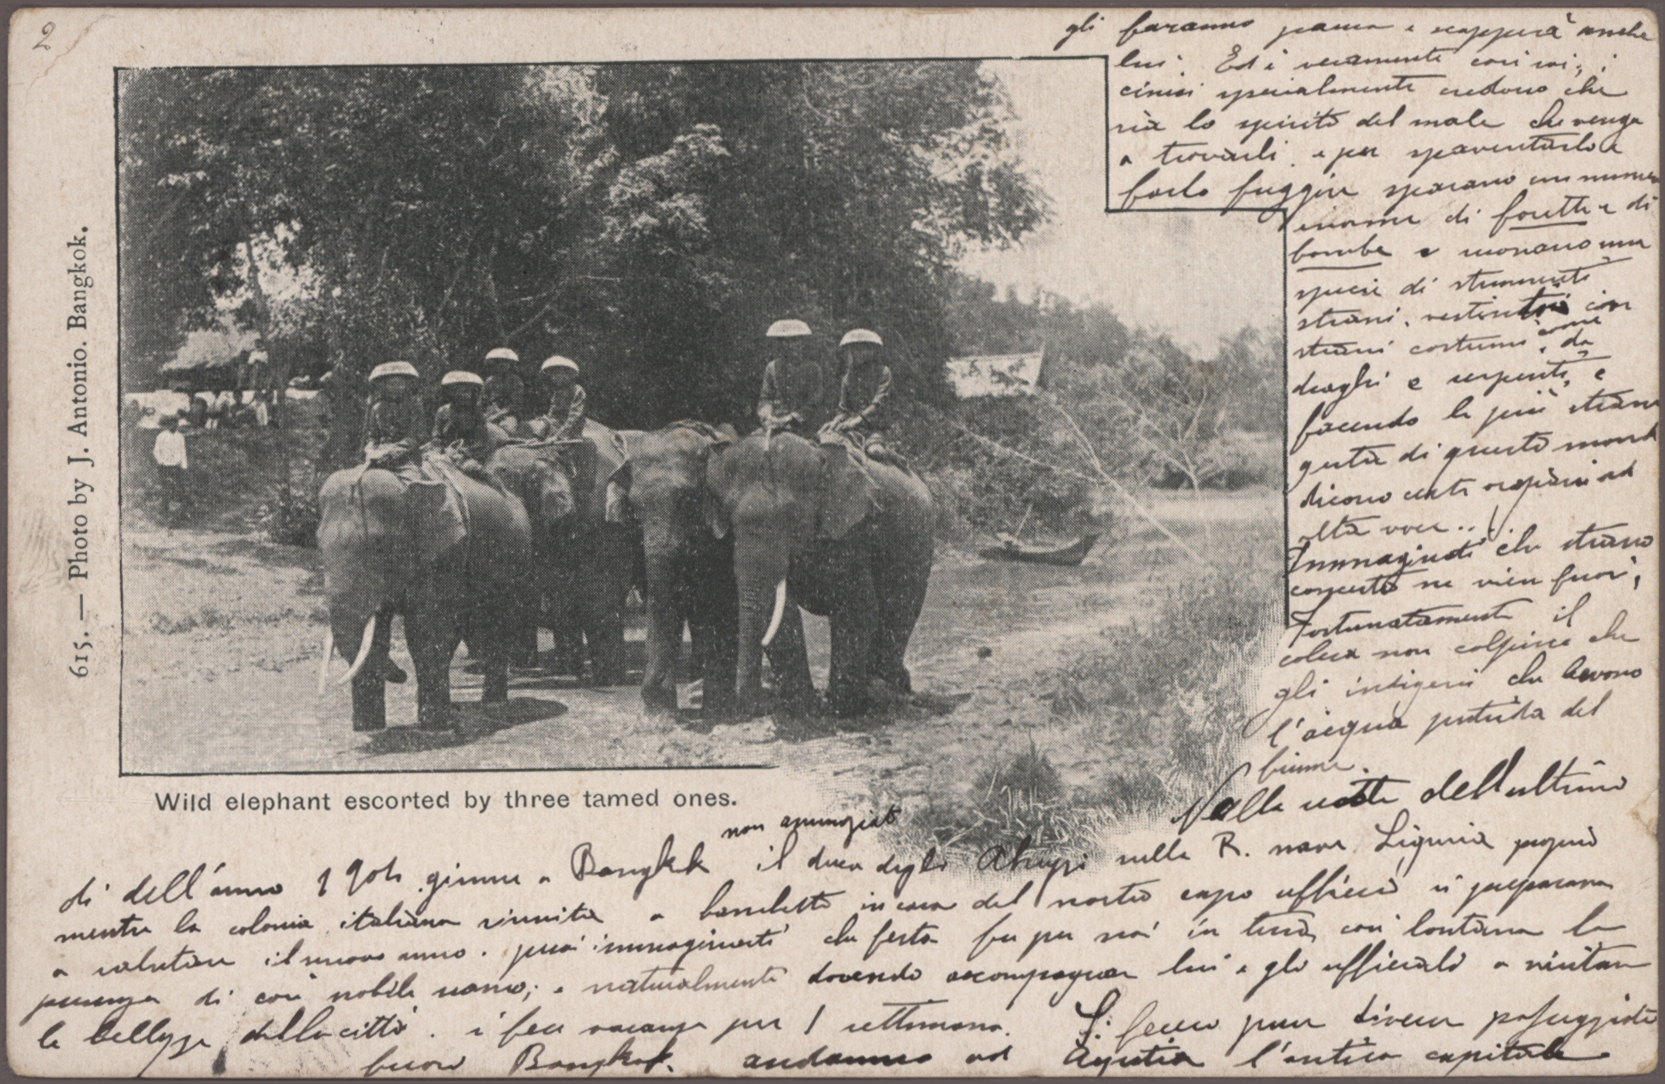 2
gli faranno paura e scapperà anche
lui. Ed è veramente così
cinesi specialmente credono che
sia lo spirito del male che venga
a trovarli e per spaventarlo e
farlo fuggire sparano un numero
enorme di foretti e di
bombe e suonano una
specie di strumenti
strani, vestiti con
strani costumi, come da
draghi e serpenti, e
facendo le più strane
gesta di questo mondo
dicono certe orazioni ad
alta voce..
Immaginati che strano
concerto ne vien fuori,
Fortunatamente il
colera non colpisce che
gli indigeni che bevono
l'acqua putrida del
fiume.
Nella notte dell'ultimo
615. — Photo by J. Antonio. Bangkok.
Wild elephant escorted by three tamed ones.
non annunziato
di dell'anno 1904 giunse a Bangkok il duca degli Abruzzi sulla R. nave Liguria proprio
mentre la colonia italiana riunita a banchetto in casa del nostro capo ufficio si preparava
a salutare il nuovo anno. puoi immaginarti che festa fu per noi in terra così lontana la
presenza di così nobile uomo; e naturalmente dovendo accompagnare lui e gli ufficiali a visitare
le bellezze della città. si fece vacanza per 1 settimana. Si fecero pure diverse passeggiate
fuori Bangkok. andammo ad Ayutia l'antica capitale